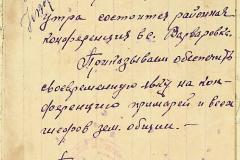 утра состоится районная
конференция в с. Варваровк
Приказываем обеспечить
своевременную явку на кон-
ференцию примарей и всех
шефов зем. общин. —